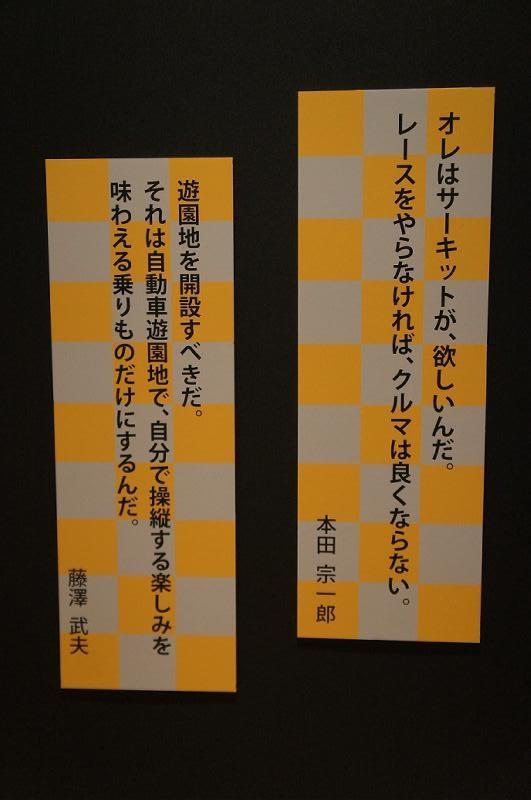 オレはサーキットが、欲しいんだ。
レースをやらなければ、クルマは良くならない。
本田 宗一郎
遊園地を開設すべきだ。
それは自動車遊園地で、自分で操縦する楽しみを
味わえる乗りものだけにするんだ。
藤澤 武夫